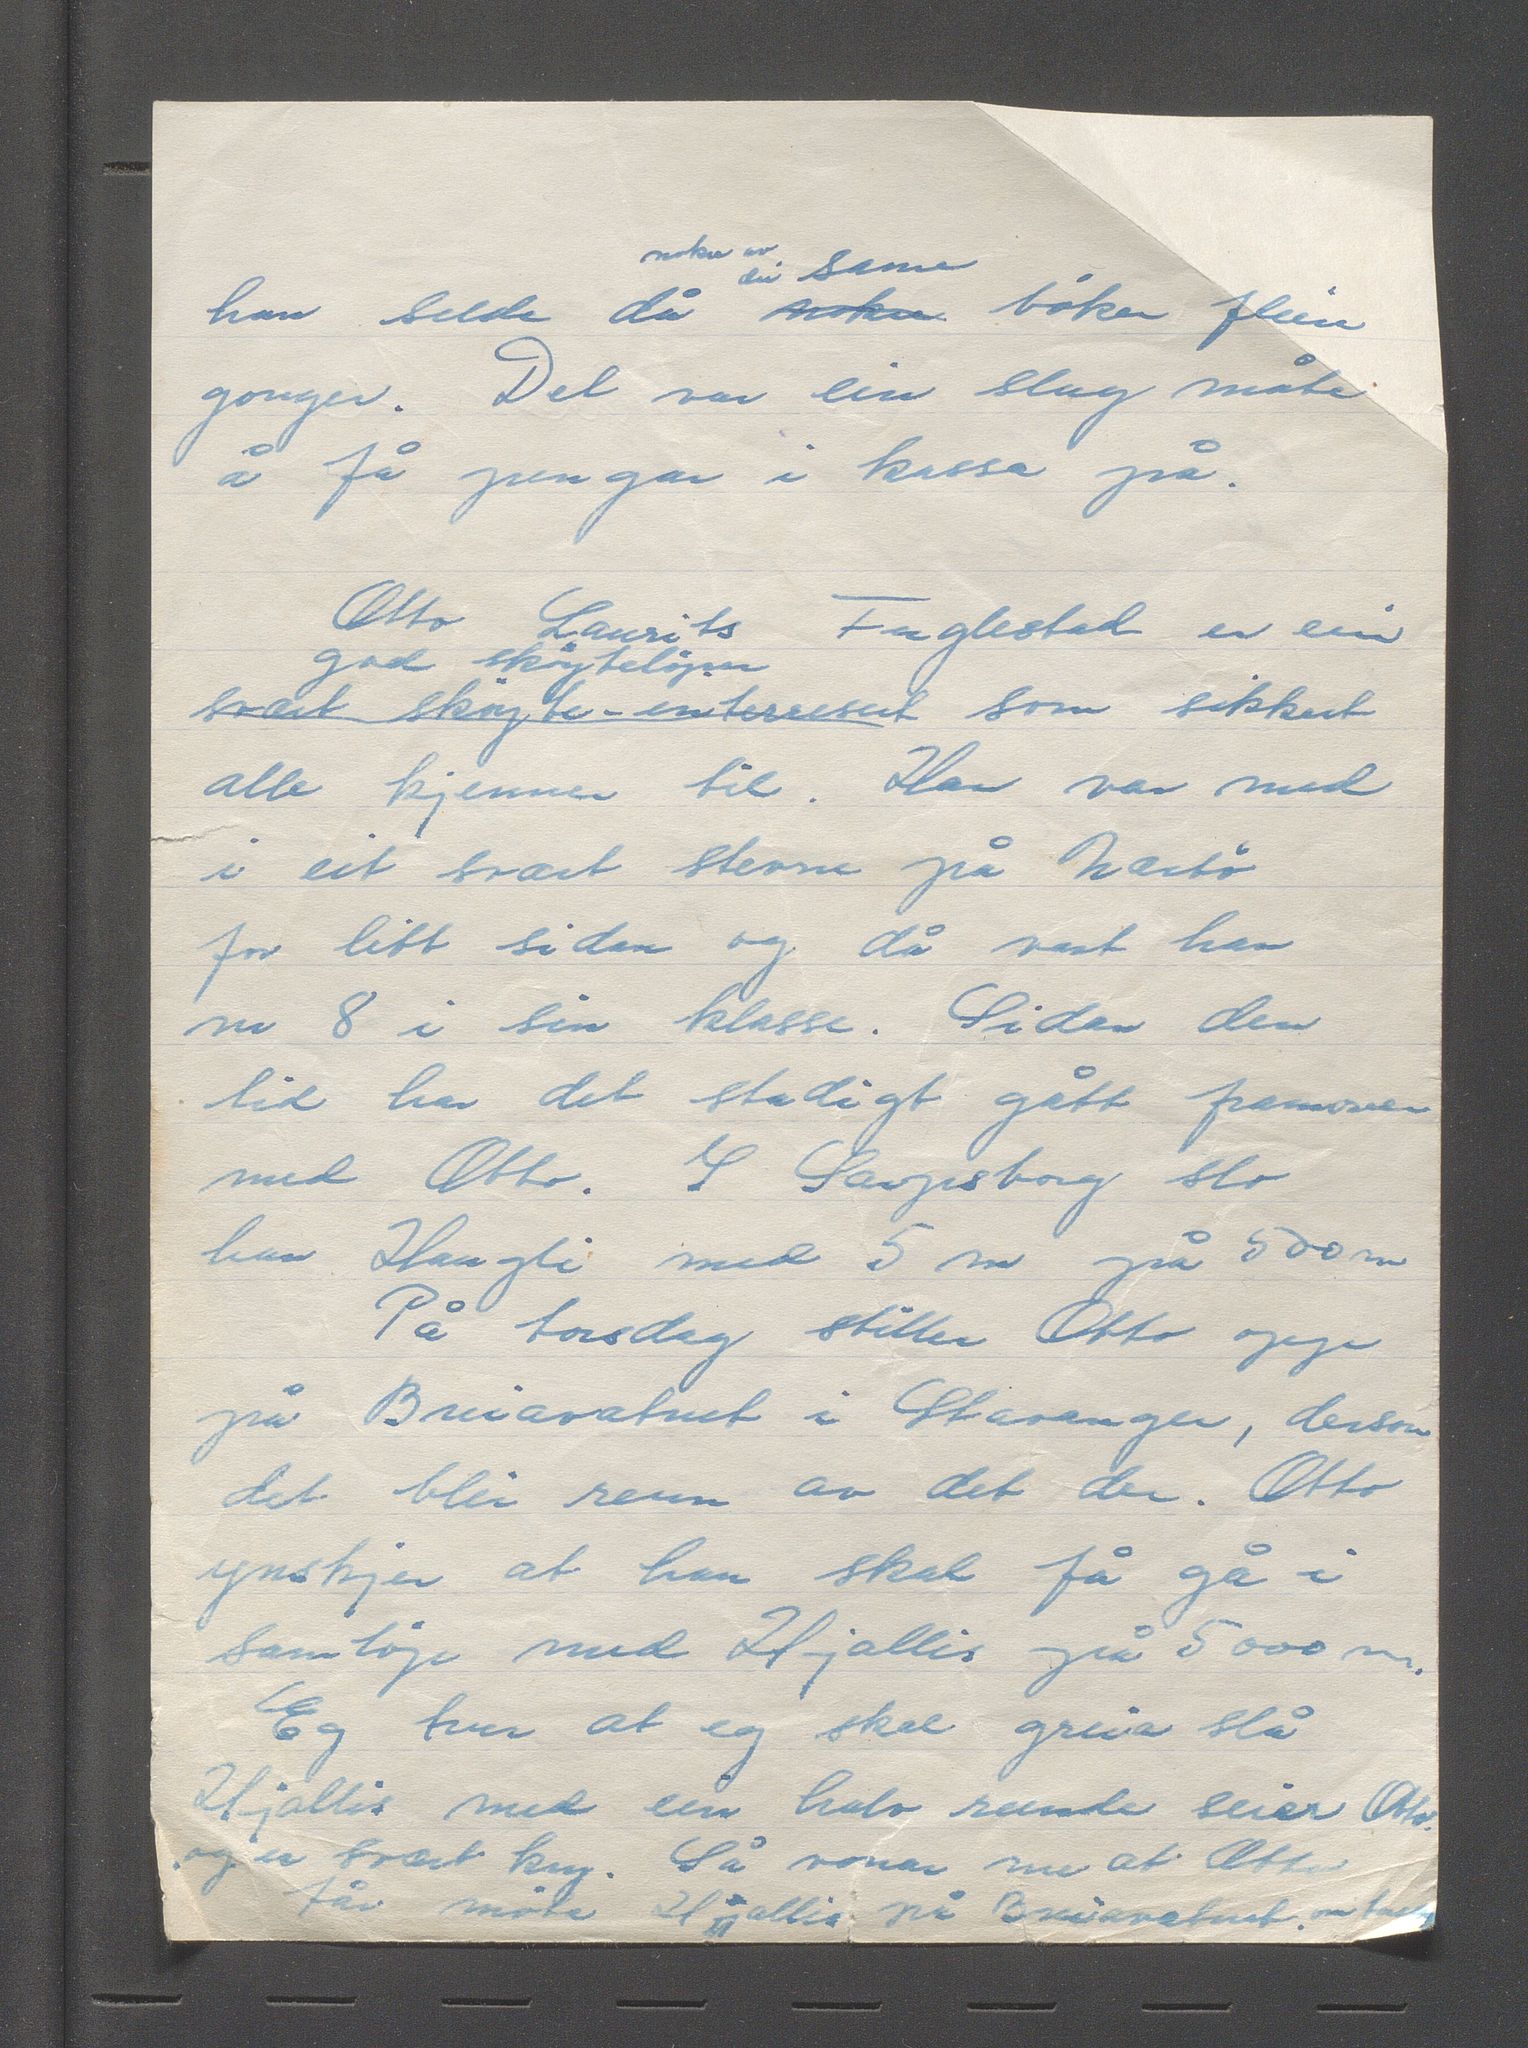 noken av
dei same
han selde då noken böker fleire
gonger. Det var ein slug måte
å få pengar i kassa på.
Otto Laurits Fuglestad er ein
god sköytelöper
svært sköyte-interresert som sikkert
alle kjenner til. Han var med
i eit svært stevne på Nærbö
for litt sidan og då vart han
nr 8 i sin klasse. Sidan den
tid har det stadigt gått framover
med Otto. I Sarpsborg slo
han Haugli med 5 m på 500 m
På torsdag stiller Otto opp
på Breiavatnet i Stavanger, dersom
det blir renn av det der. Otto
ynskjer at han skal få gå i
samlöp med Hjallis på 5000 m.
Eg trur at eg skal greia slå
Hjallis med ein halv runde seier Otto.
og er svært kry. Så vonar me at Otto
får möte Hjallis på Breiavatnet